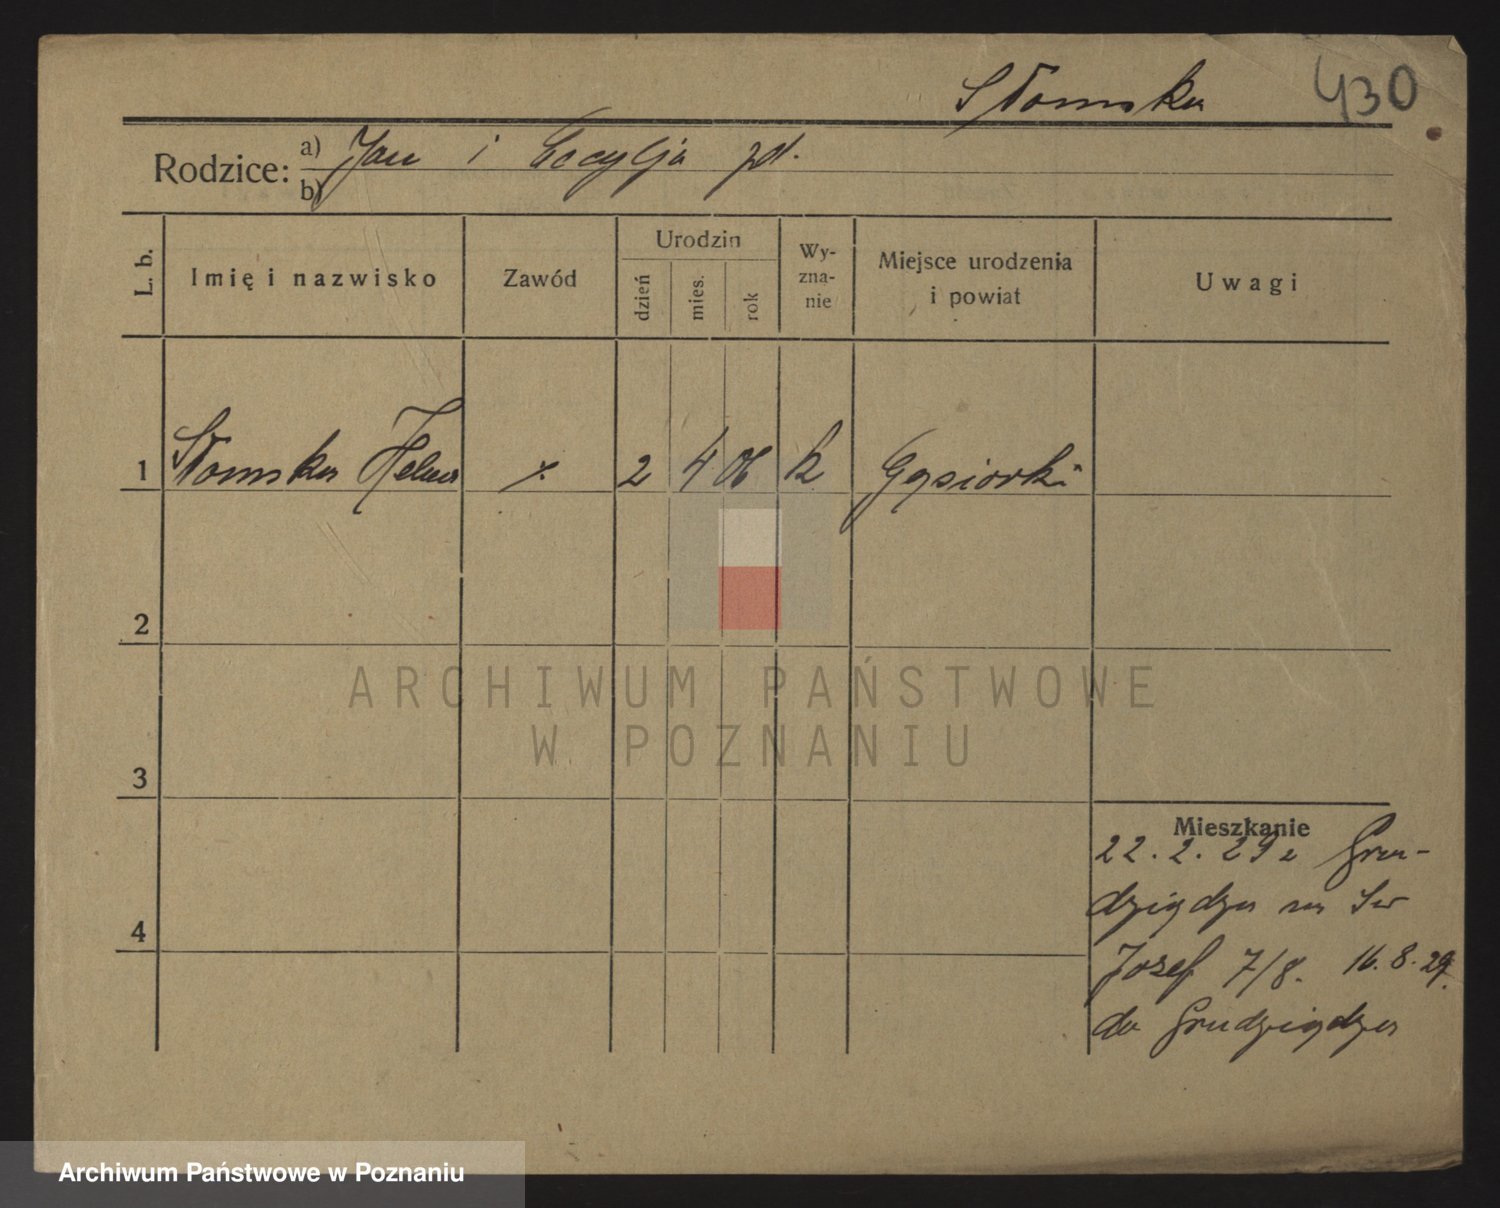 Słomska 430
Rodzice: a) Jan i Cecylja
b)
L. b. Imię i nazwisko Zawód Urodzin dzień mies. rok Wy-zna-nie Miejsce urodzenia i powiat Uwagi
1 Słomska Helena 2 4 06 k Gąsiorki
2
3
4
Mieszkanie
22. 2. 29 z Gru-
dziądza na Św
Józef 7/8. 16. 8. 29.
do Grudziądza
ARCHIWUM PAŃSTWOWE
W POZNANIU
Archiwum Państwowe w Poznaniu